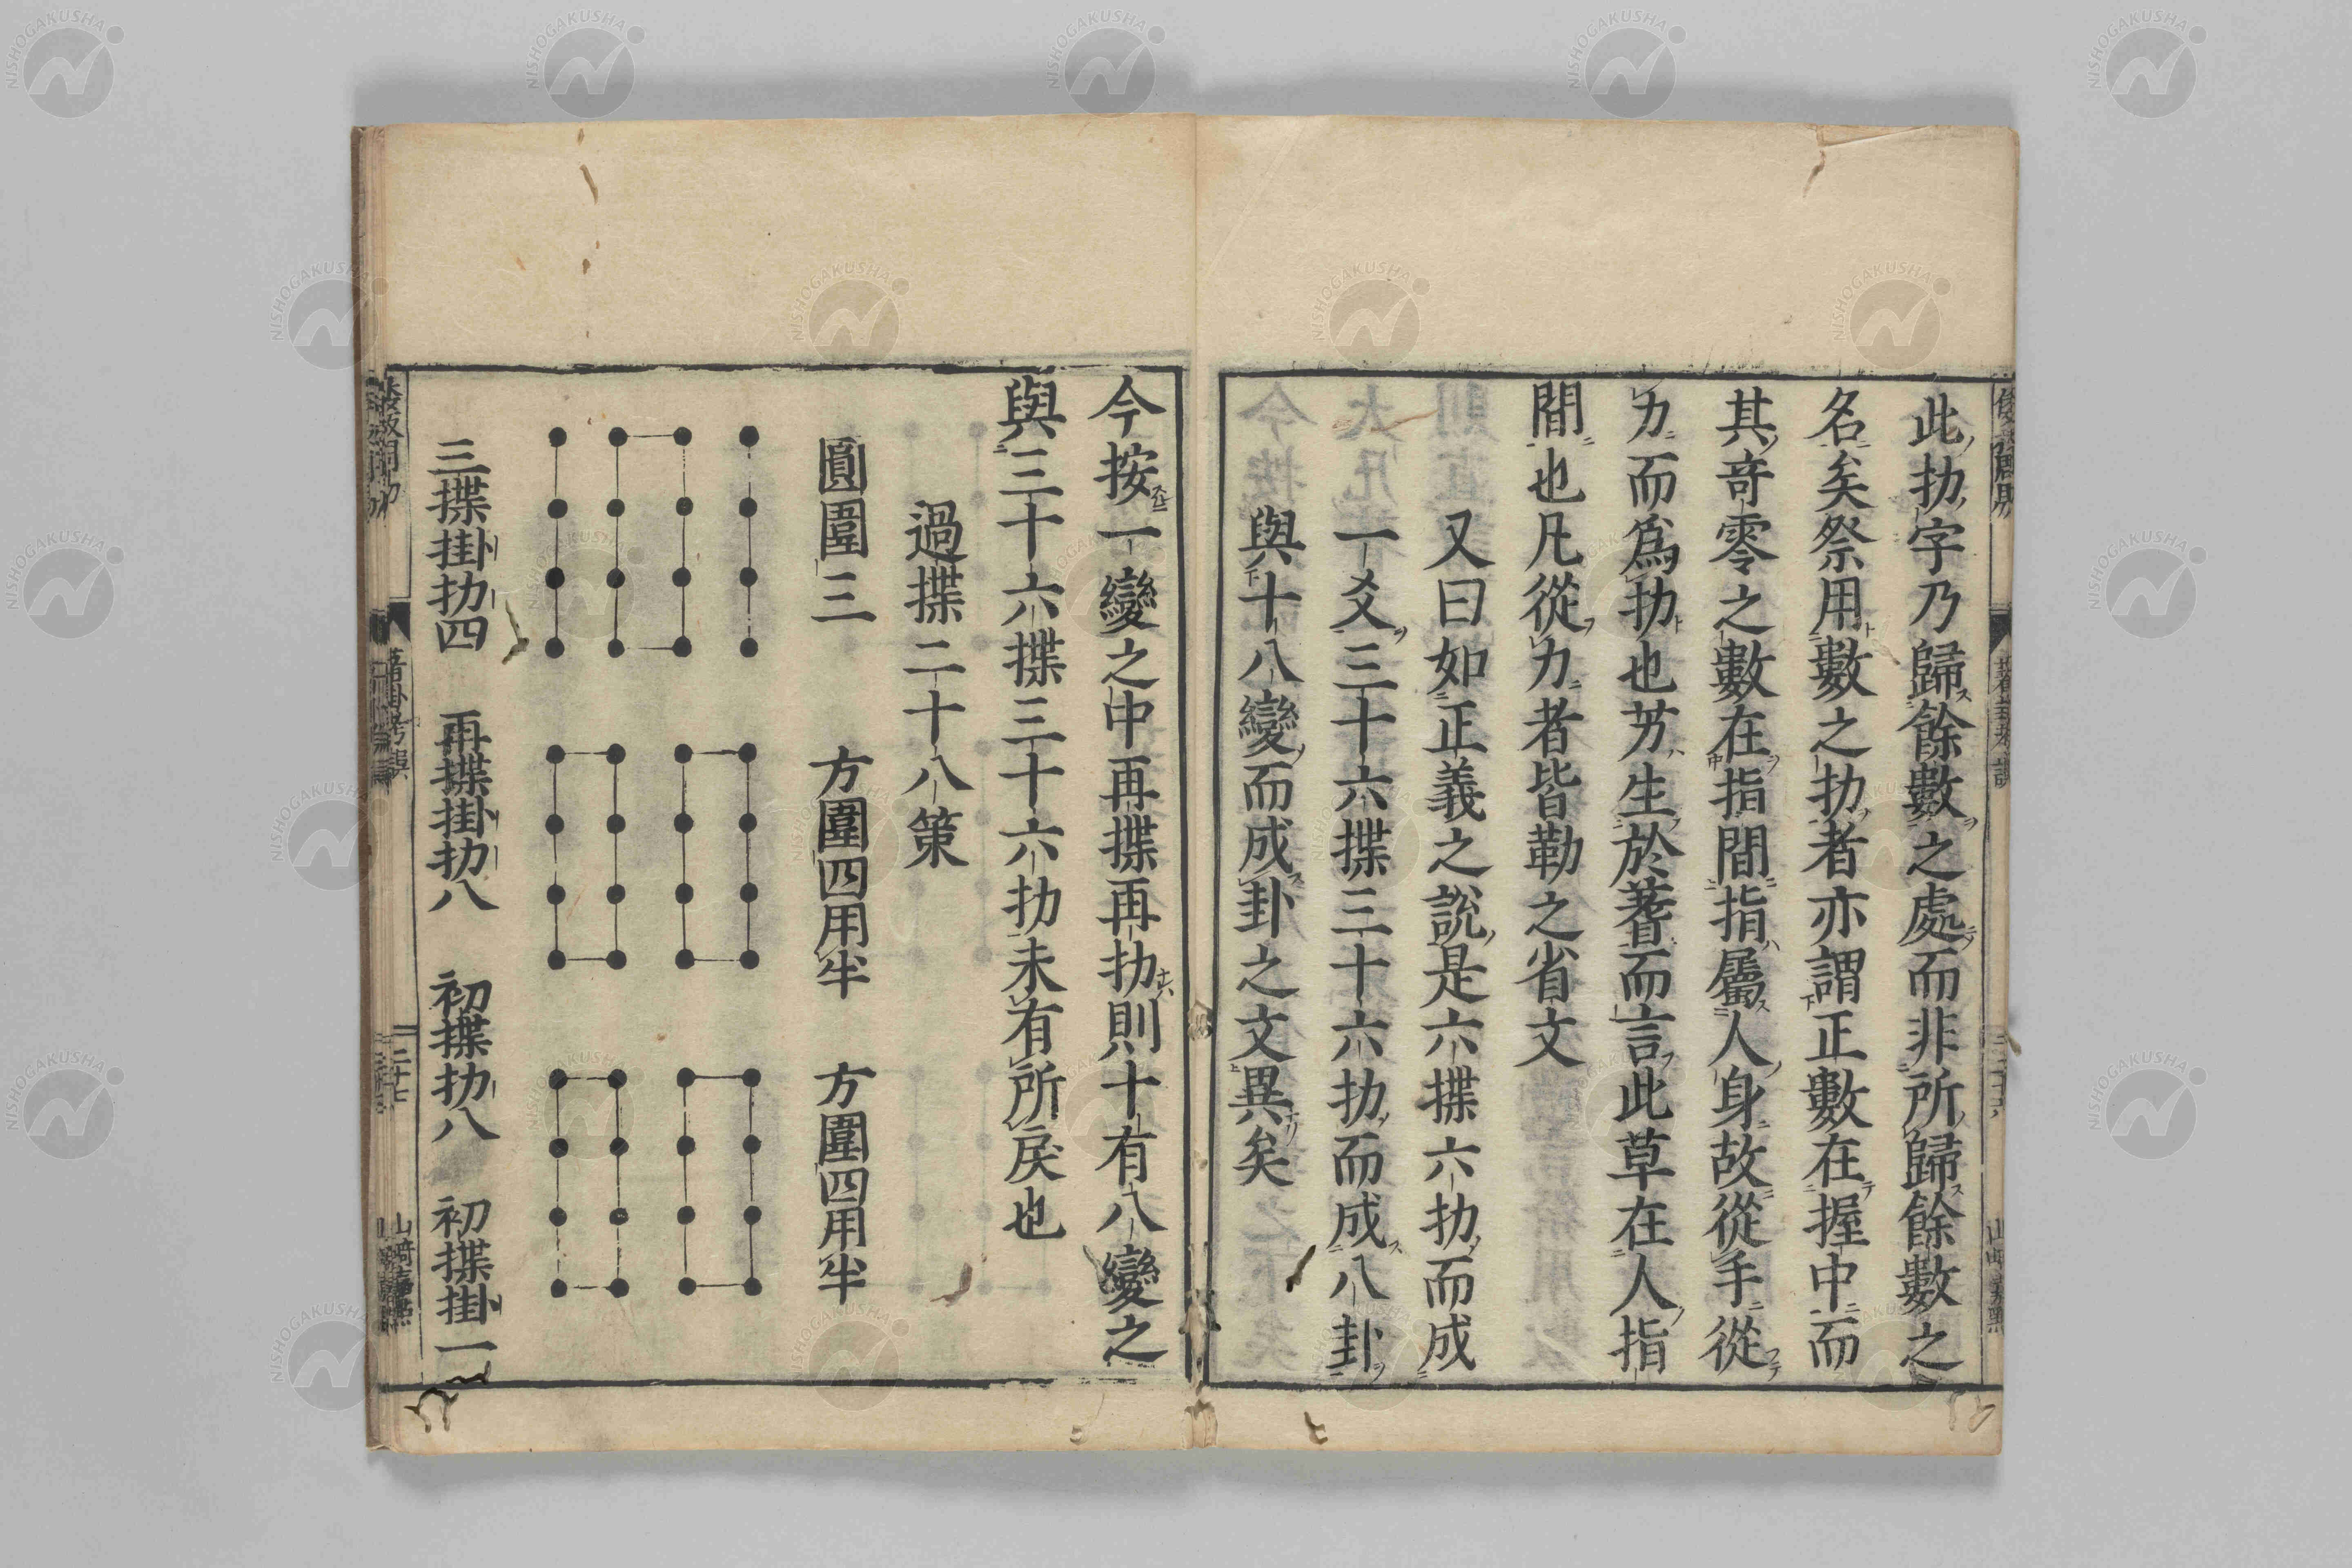 此扐字乃歸餘數之處而非所歸餘數之
名矣祭用數之扐者亦謂正數在握中而
其奇零之數在指間指屬人身故從手從
力而爲扐也艻生於蓍而言此草在人指
間也凡從力者皆勒之省文
又曰如正義之說是六揲六扐而成
一爻三十六揲三十六扐而成八卦
與十八變而成卦之文異矣
今按一變之中再揲再扐則十有八變之
與三十六揲三十六扐未有所戾也
過揲二十八策
圓圍三
方圍四用半
方圍四用半
三揲掛扐四
再揲掛扐八
初揲扐八
初揲掛一
蓍卦考誤
二十七
NISHOGAKUSHA